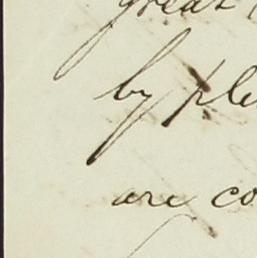 great
by ple
are co